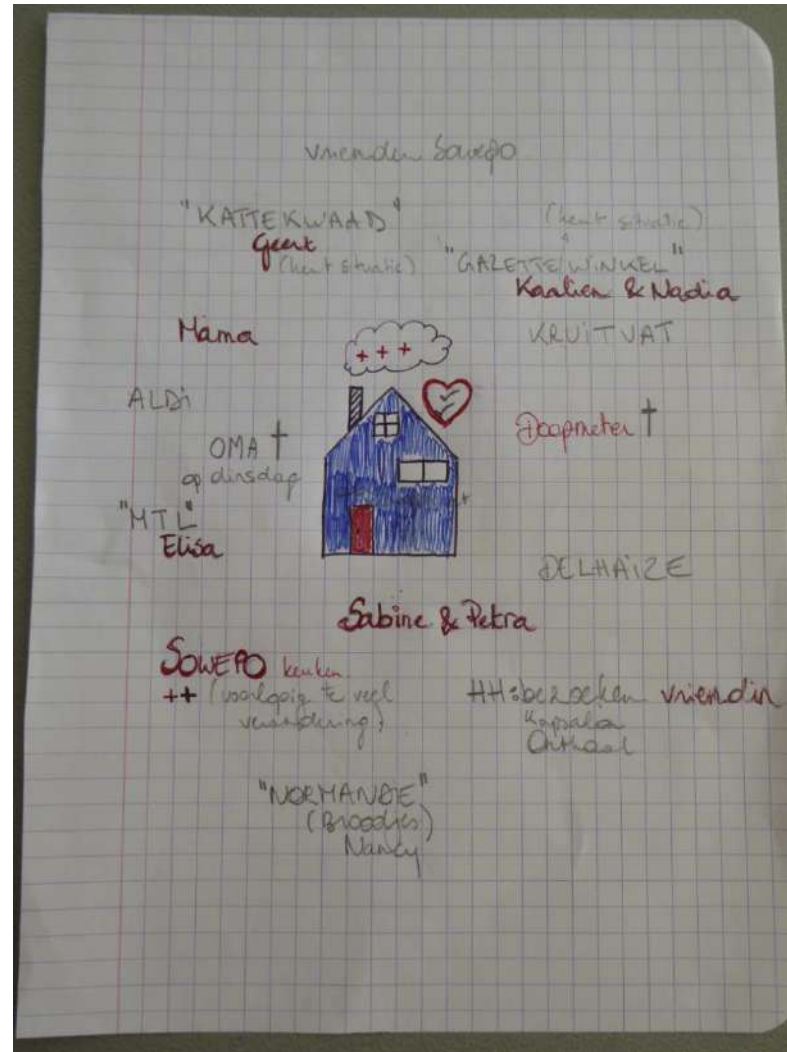 vrienden Sowepo
"KATTEKWAAD"
Geert
(kent situatie)
(kent situatie)
"GAZETTEWINKEL"
Kaatien & Nadia
Mama
+++
KRUITVAT
ALDI
OMA †
op dinsdag
Doopmeter †
"MTL"
Elisa
DELHAIZE
Sabine & Petra
SOWEPO keuken
++ (voorlopig te veel
verandering)
HH: bezoeken vriendin
Kapsalon
Onthaal
"NORMANDIE"
(Broodjes)
Nancy